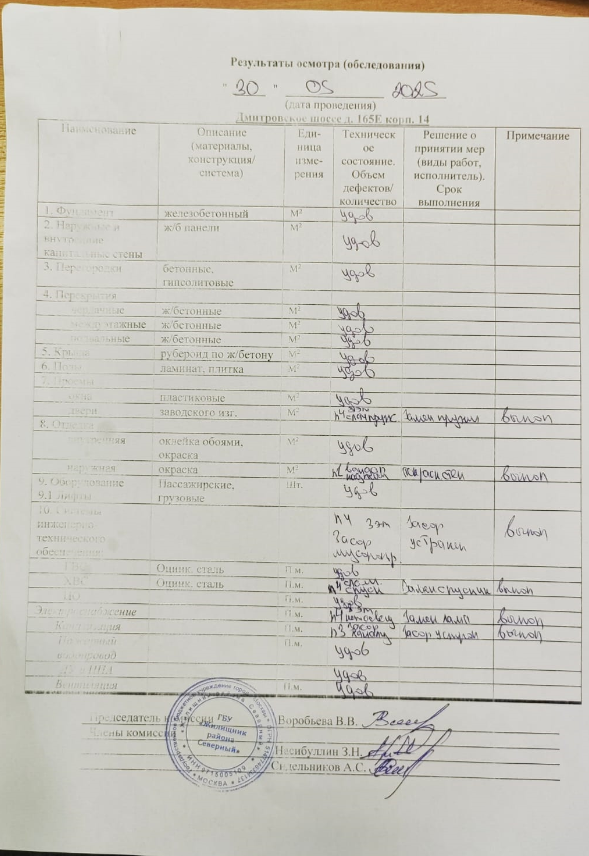 Результаты осмотра (обследования)
" 30 " 05 2025
(дата проведения)
Дмитровское шоссе д. 165Е корп. 14
Наименование Описание (материалы, конструкция/ система) Еди- ница изме- рения Техническ ое состояние. Объем дефектов/ количество Решение о принятии мер (виды работ, исполнитель). Срок выполнения Примечание
1. Фундамент железобетонный М² удов
2. Наружные и внутренние капитальные стены ж/б панели М² удов
3. Перегородки бетонные, гипсолитовые М² удов
4. Перекрытия
чердачные ж/бетонные М² удов
междуэтажные ж/бетонные М² удов
подвальные ж/бетонные М² удов
5. Крыша рубероид по ж/бетону М² удов
6. Полы ламинат, плитка М² удов
7. Проемы
окна пластиковые М² удов
двери заводского изг. М² замен пружин выпол
8. Отделка
внутренняя оклейка обоями, окраска М² удов
наружная окраска М² выпол
9. Оборудование Пассажирские, Шт. удов
9.1 лифты грузовые
10. Системы инженерно- технического обеспечения п4 3эт Засор мусоропр. Засор устранен выпол
ГВС Оцинк. сталь П.м. удов
ХВС Оцинк. сталь П.м. выпол
ЦО П.м. удов
Электроснабжение П.м. Замен ламп выпол
Канализация П.м. п3 засор Засор устран выпол
П.м. удов
ДУ и ППА удов
Вентиляция П.м. удов
Председатель комиссии Воробьева В.В.
Члены комиссии
Насибуллин З.Н.
Сидельников А.С.
ГБУ
«Жилищник
района
Северный»
МОСКВА